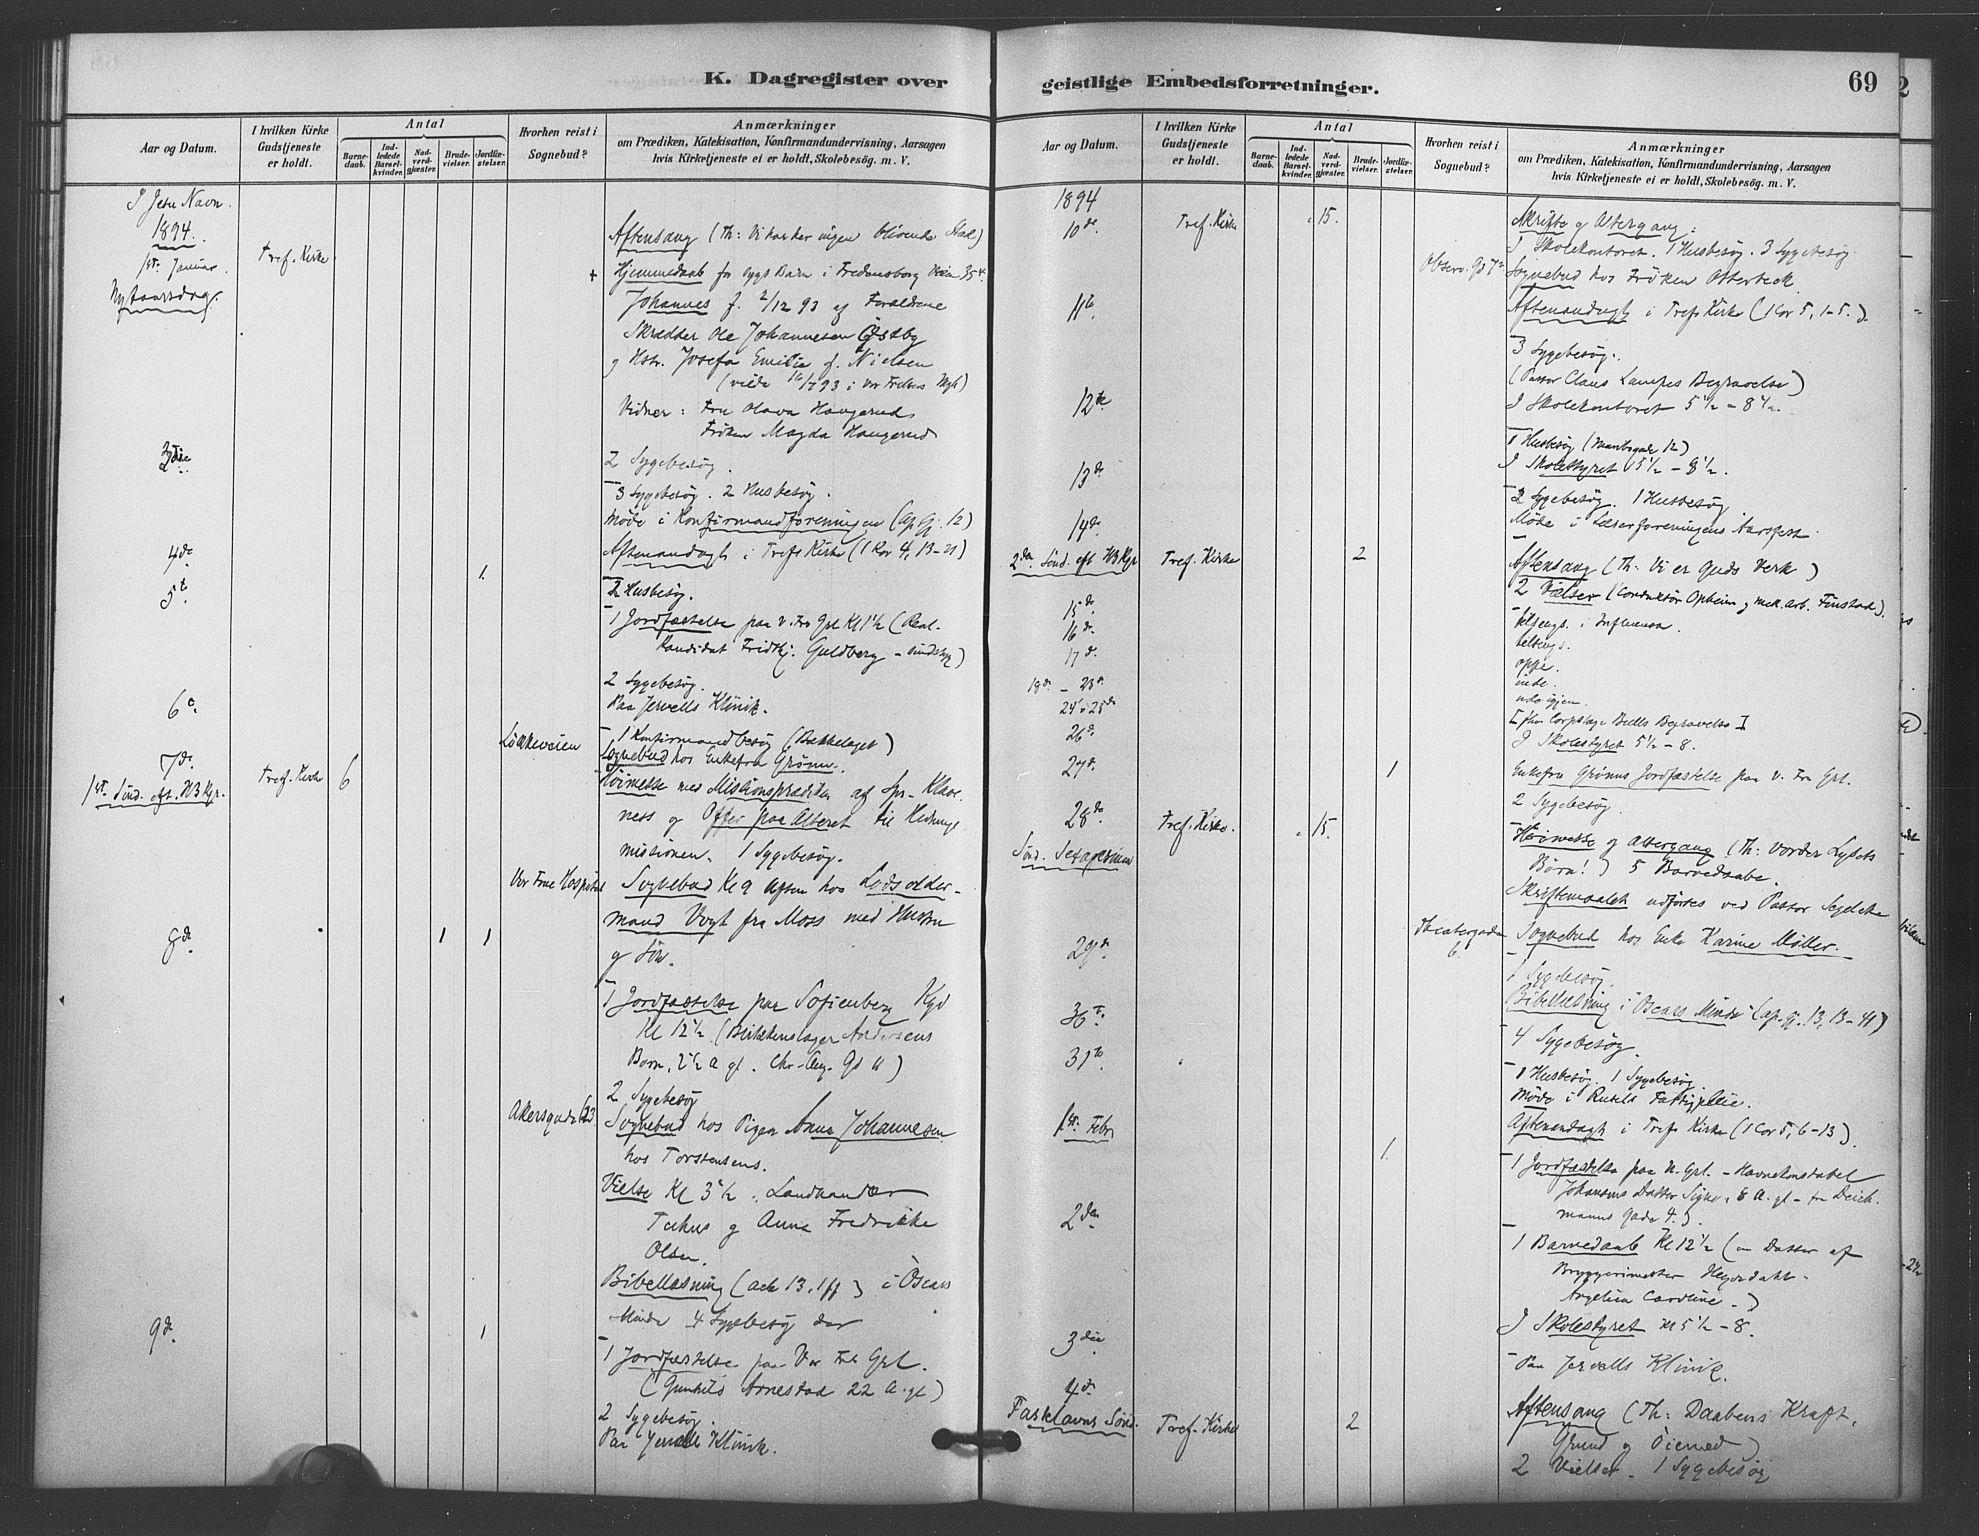 K. Dagregister over
Aar og Datum.
I hvilken Kirke Gudstjeneste er holdt.
Antal
Barnedaab.
Indledede Barselkvinder.
Nadverdgjæster.
Brudevielser.
Jordfæstelser.
Hvorhen reist i Sognebud?
Anmærkninger
om Prædiken, Katekisation, Konfirmandundervisning, Aarsagen
hvis Kirketjeneste ei er holdt, Skolebesøg. m. V.
I Jesu Navn.
1894.
1ste Januar.
Nytaarsdag.
Tref. Kirke
Aftensang (Th: Vi har her ingen blivende Stad)
+ Hjemmedaab for sygt Barn i Fredensborg Veien 35
Johannes f. 2/12 93 af Forældrene
Skrædder Ole Johannesen Østby
og Hstr. Josefa Emilie f. Nielsen
(viede 16/7 93 i Vor Frelsers Mgh)
Vidner: Fru Olava Haugerud
Frøken Magda Haugerud
3die
2 Sygebesøg.
3 Sygebesøg. 2 Husbesøg.
Møde i Konfirmandforeningen (Ap. Gj. 12)
4de
Aftenandagt i Trefs Kirke (1 Kor 4, 13-21)
5te
1.
2 Husbesøg.
1 Jordfæstelse paa V. Frs Grl Kl 1½ (Real-
Kandidat Fridtj. Guldberg - sindssyg)
2 Sygebesøg.
6e
Paa Jervells Klinik.
1 Konfirmandbesøg (Bækkelaget)
7de
Løkkeveien
Sognebud hos Enkefru Grønn.
1ste Sønd. eft. H3Kgr.
Tref. Kirke
6
Høimesse med Missionsprædiken af Spr. Klave-
ness og Offer paa Alteret til Hedninge-
missionen. 1 Sygebesøg.
Vor Frue Hospital
Sognebud Kl 9 Aften hos Lodsolder-
mand Vogt fra Moss med Hustru
og Søn.
8de
1
1
1 Jordfæstelse paa Sofienberg Kgd
Kl 12½ (Blikkenslager Andersens
Barn, 2½ A gl. Chr. Aug. Gd 11)
2 Sygebesøg
Akersgade 63
Sognebud hos Pigen Anna Johannesen
hos Torstensens.
Vielse Kl 3½. Landhandler
og Anna Fredrikke
Olsen.
Bibellæsning (Act 13, 1ff) i Oscars
Minde 4 Sygebesøg der
9de
1
1 Jordfæstelse paa Vor Frs Grl.
(Gunhild Arnestad 22 A. gl)
2 Sygebesøg.
Paa Jervells Klinik.
geistlige Embedsforretninger.
69
Aar og Datum.
I hvilken Kirke Gudstjeneste er holdt.
Antal
Barnedaab.
Indledede Barselkvinder.
Nadverdgjæster.
Brudevielser.
Jordfæstelser.
Hvorhen reist i Sognebud?
Anmærkninger
om Prædiken, Katekisation, Konfirmandundervisning, Aarsagen
hvis Kirketjeneste ei er holdt, Skolebesøg. m. V.
1894
10de
Tref. Kirke
15.
Skrifte og Altergang.
I Skolekontoret. 1 Husbesøg. 3 Sygebesøg
Observ. Gd 7
Sognebud hos Frøken Osterbeck
11te
Aftenandagt i Trefs Kirke (1 Cor 5, 1-5.)
3 Sygebesøg.
(Pastor Claus Begravelse)
12te
I Skolekontoret 5½ - 8½.
1 Husbesøg (Munkegade 12)
13de
I Skolestyret 5½ - 8½.
2 Sygebesøg. 1 Husbesøg
14de
Møde i Aarsfest
2den Sønd. eft H3Kgr
Tref. Kirke
2
Aftensang (Th: Vi er Guds Verk)
2 Vielser (Conduktør Opheim og mek. arb. Finstad).
15de
tilsengs. i Influensa.
16de
tilsengs.
17de
oppe.
18de - 23de
inde.
24 & 25de
ude igjen.
26de
[ Begravelse ]
I Skolestyret 5½ - 8.
27de
1
Enkefru Grønns Jordfæstelse paa V. Frs Grl.
2 Sygebesøg
28de
Tref. Kirke.
15.
Sønd. Sexagesima
Høimesse og Altergang (Th: Vorder Lysets
Børn!) 5 Barnedaabe.
Skriftemaalet udførtes ved Pastor
29de
Theatergaden 6.
Sognebud hos Enke Karine Møller.
1 Sygebesøg.
Bibellæsning i Oscars Minde (Ap. Gj. 13, 13-41)
30te
4 Sygebesøg.
31te
1 Husbesøg. 1 Sygebesøg.
Møde i Fattigpleie.
1ste Febr
Aftenandagt i Trefs Kirke (1 Cor 5, 6-13)
1.
1 Jordfæstelse paa N. Grl. - Havnekonstabel
Johansens Datter Signe, 8 A. gl - fra Deich-
manns Gade 4.).
2den
1 Barnedaab Kl 12½ (en Datter af
Bryggerimester
Angelica Caroline -)
I Skolestyret Kl 5½ - 8.
3die
Paa Jervells Klinik.
4de
Fastelavns Sønd.
Tref. Kirke
2
Aftensang (Th: Daabens Kraft,
Grund og Øiemed)
2 Vielser. 1 Sygebesøg